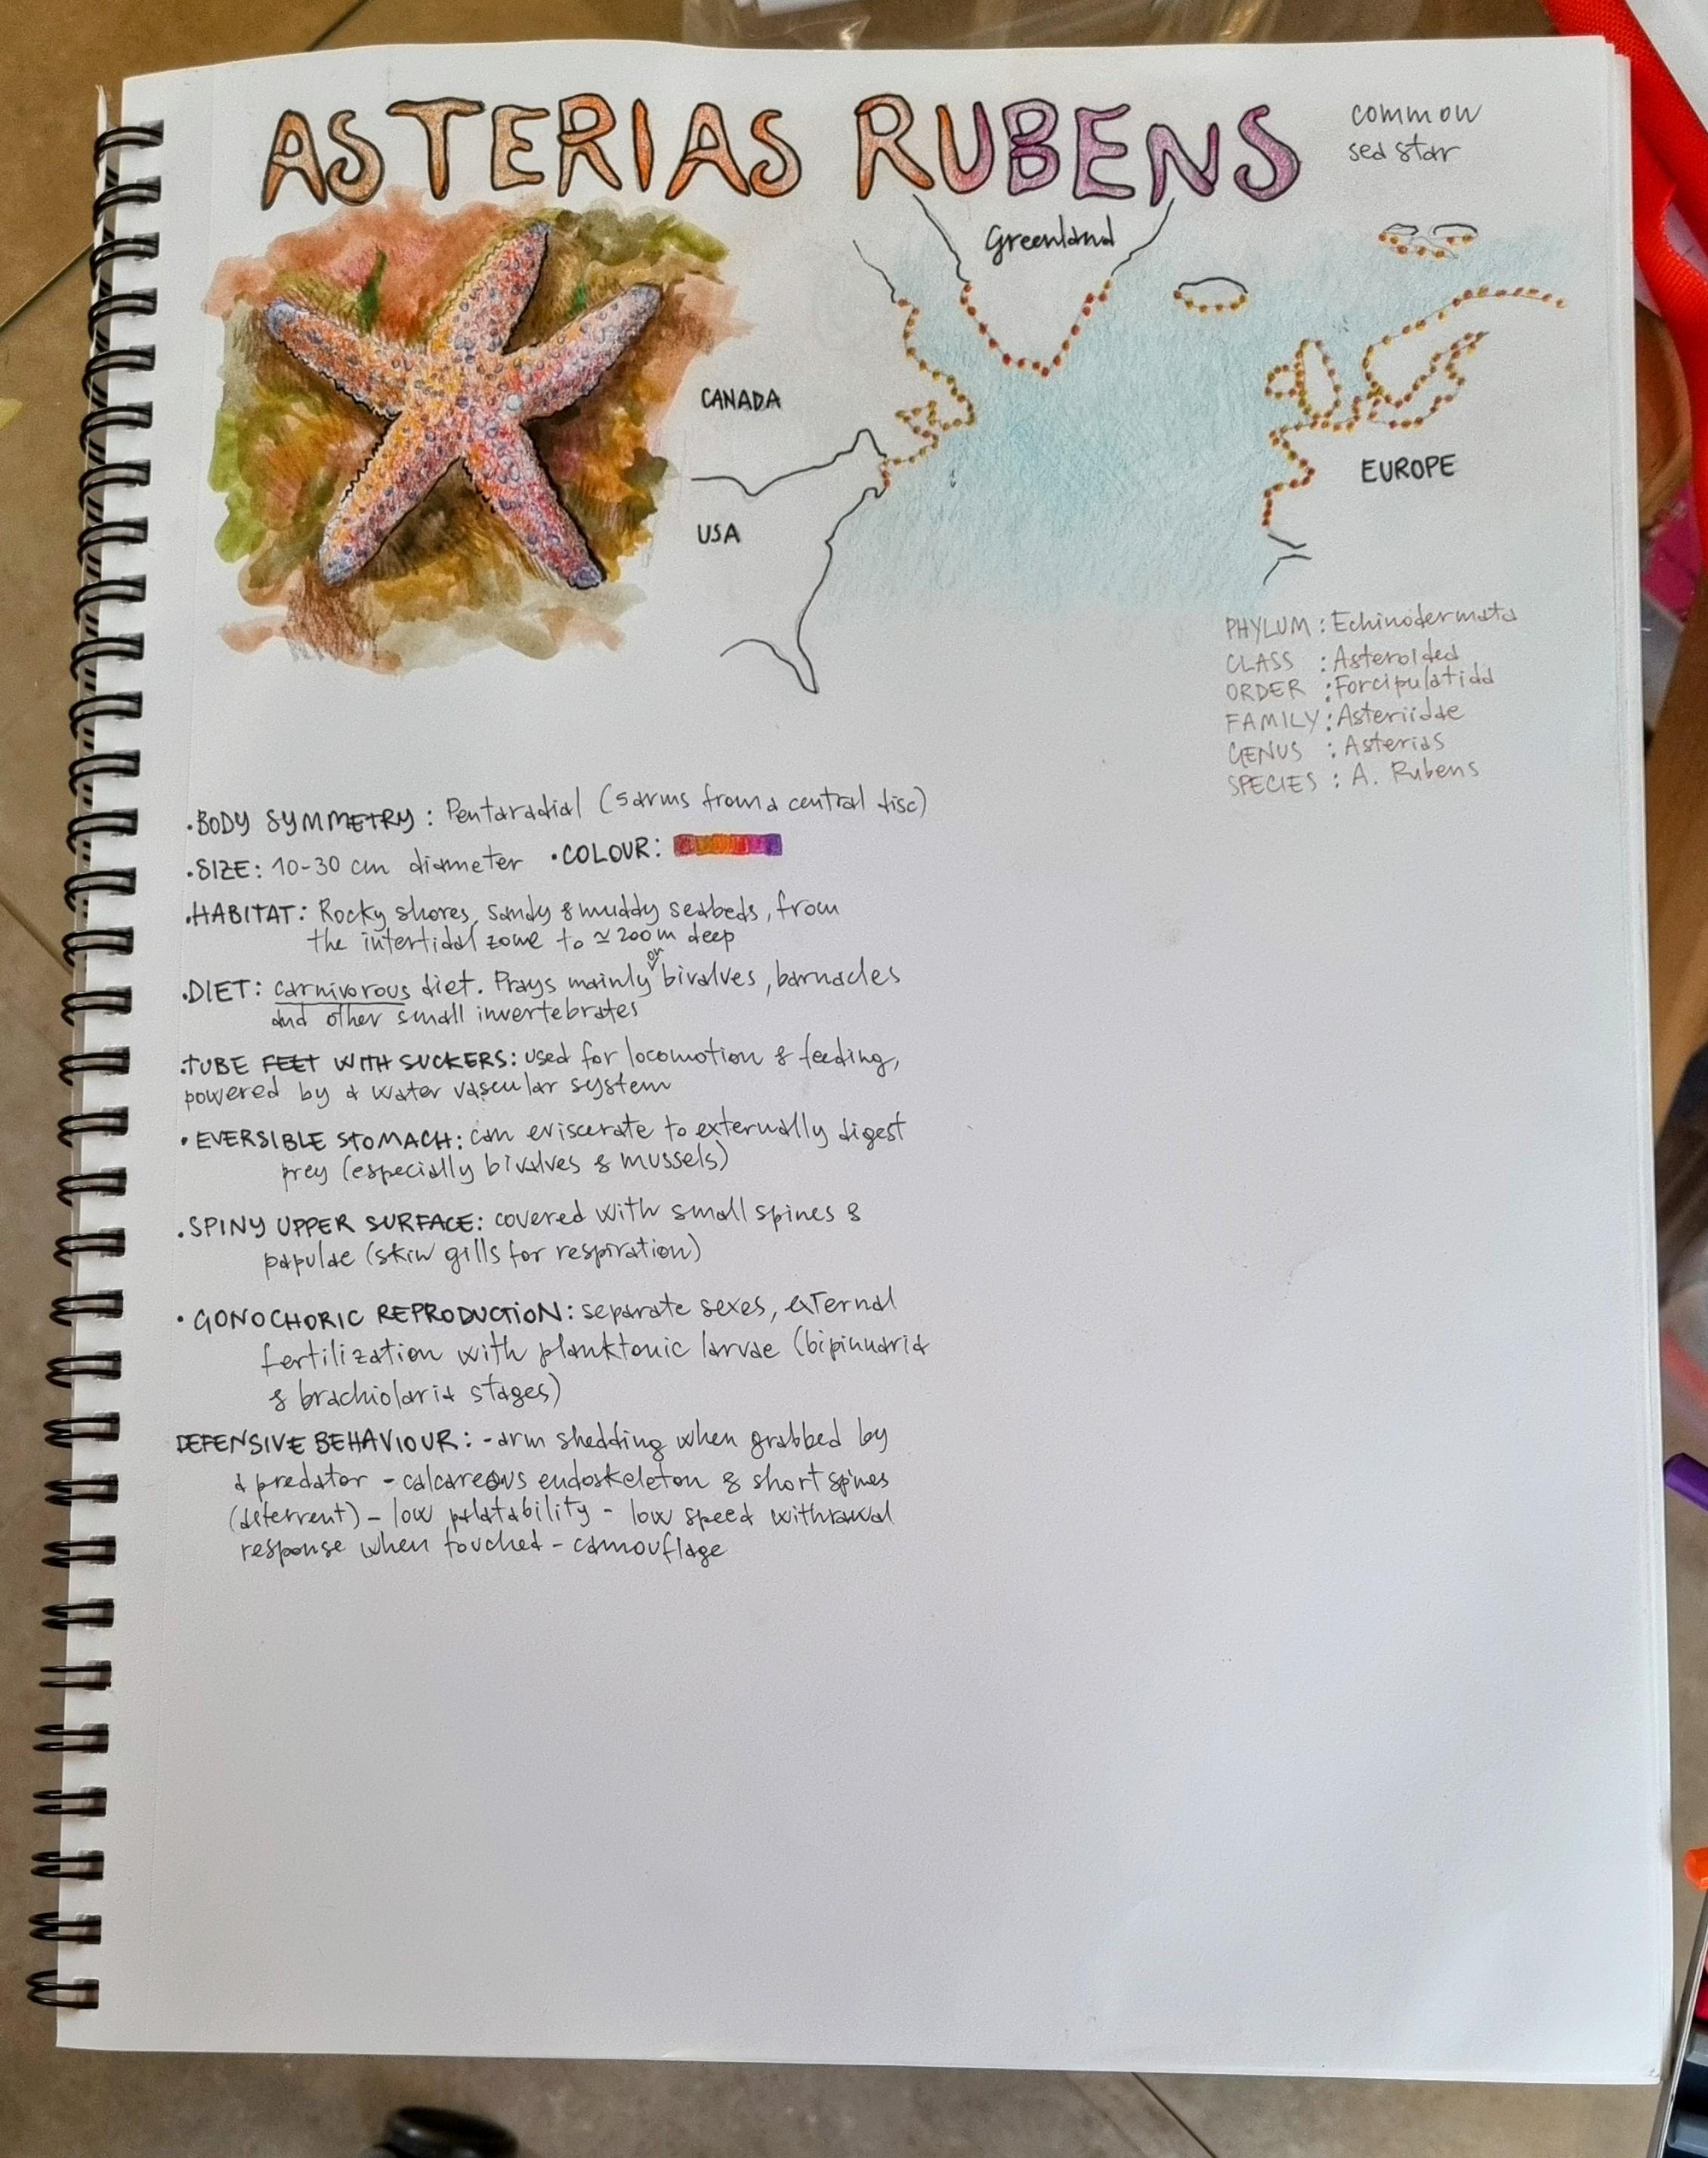 ASTERIAS RUBENS
common
sea star
Greenland
CANADA
USA
EUROPE
PHYLUM : Echinodermata
CLASS : Asteroidea
ORDER : Forcipulatida
FAMILY : Asteriidae
GENUS : Asterias
SPECIES : A. Rubens
• BODY SYMMETRY : Pentaradial (5 arms from a central disc)
• SIZE : 10-30 cm diameter • COLOUR :
• HABITAT : Rocky shores, sandy & muddy seabeds, from
the intertidal zone to ≃ 200 m deep
• DIET : carnivorous diet. Prays mainly on bivalves, barnacles
and other small invertebrates
• TUBE FEET WITH SUCKERS : used for locomotion & feeding,
powered by a water vascular system
• EVERSIBLE STOMACH : can eviscerate to externally digest
prey (especially bivalves & mussels)
• SPINY UPPER SURFACE : covered with small spines &
papulae (skin gills for respiration)
• GONOCHORIC REPRODUCTION : separate sexes, external
fertilization with planktonic larvae (bipinnaria
& brachiolaria stages)
DEFENSIVE BEHAVIOUR : - arm shedding when grabbed by
a predator - calcareous endoskeleton & short spines
(deterrent) - low palatability - low speed withrawal
response when touched - camouflage